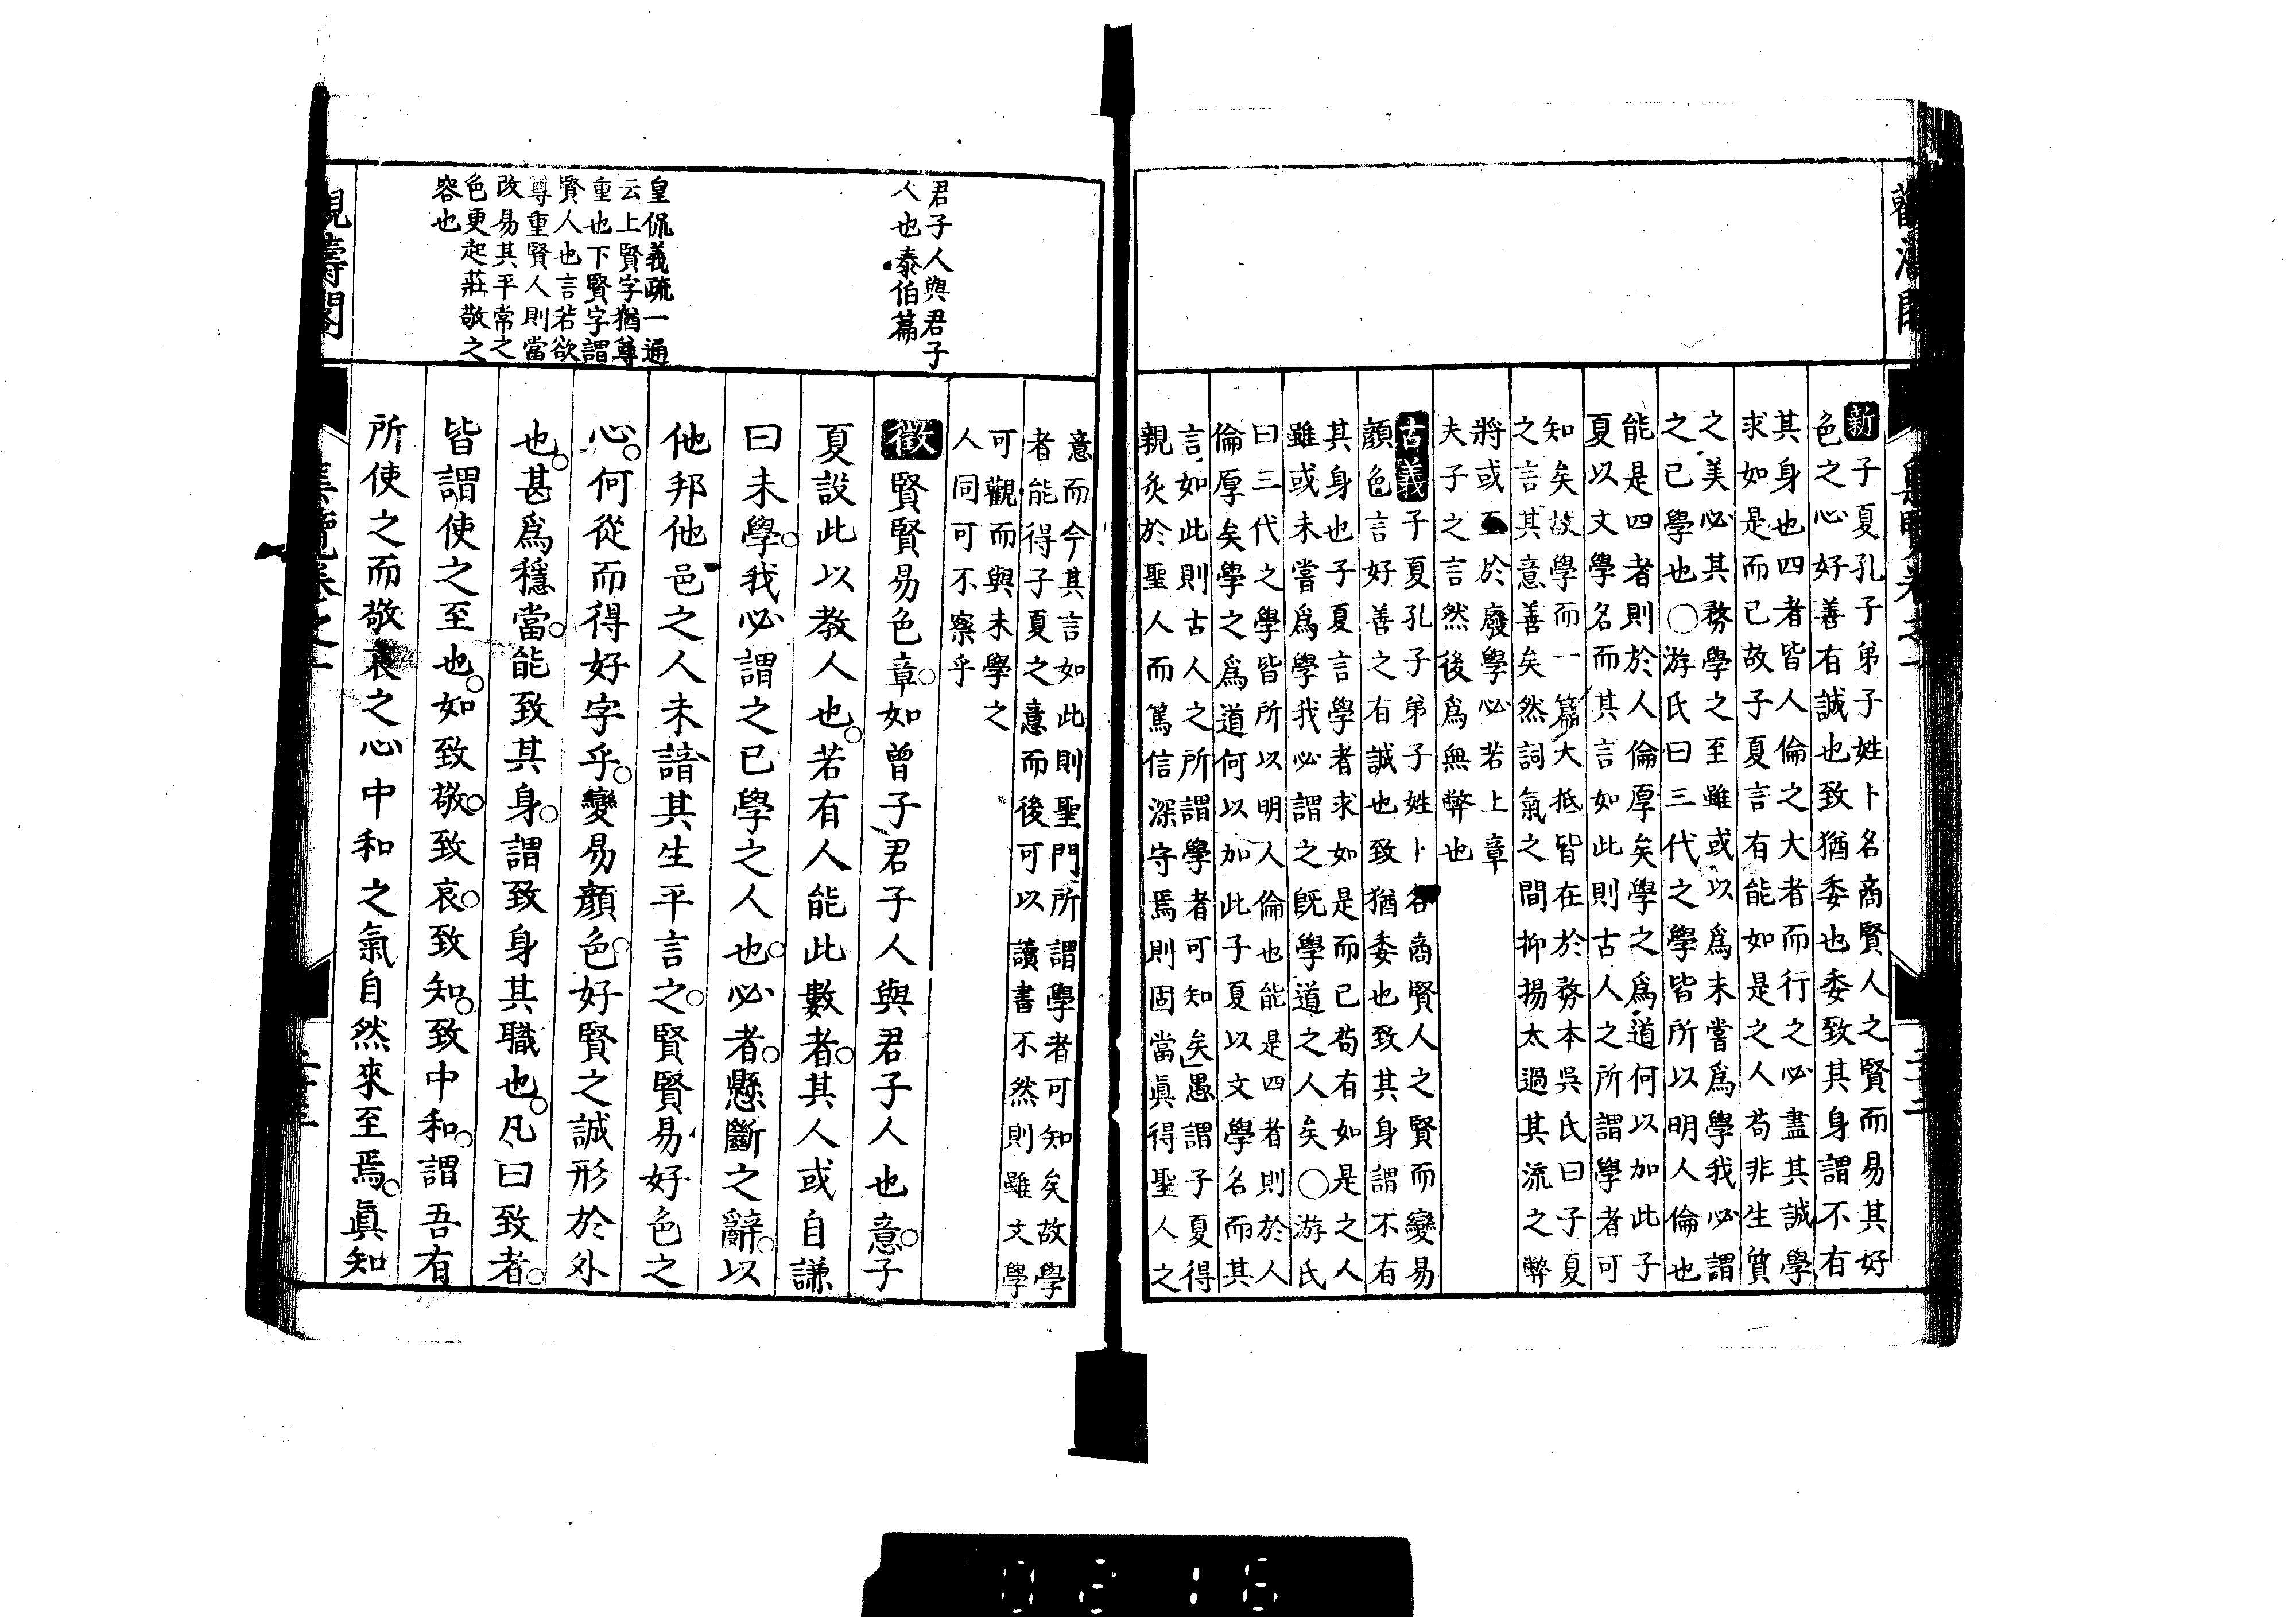 新子夏孔子弟子姓卜名商賢人之賢而易其好
色之心好善有誠也致猶委也委致其身謂不有
其身也四者皆人倫之大者而行之必盡其誠學
求如是而已故子夏言有能如是之人苟非生質
之美必其務學之至雖或以爲未嘗爲學我必謂
之已學也〇游氏曰三代之學皆所以明人倫也
能是四者則於人倫厚矣學之爲道何以加此子
夏以文學名而其言如此則古人之所謂學者可
知矣故學而一篇大抵皆在於務本吳氏曰子夏
之言其意善矣然詞氣之間抑揚太過其流之弊
將或至於廢學必若上章
夫子之言然後爲無弊也
古義子夏孔子弟子姓卜名商賢人之賢而變易
顏色言好善之有誠也致猶委也致其身謂不有
其身也子夏言學者求如是而已苟有如是之人
雖或未嘗爲學我必謂之旣學道之人矣〇游氏
曰三代之學皆所以明人倫也能是四者則於人
倫厚矣學之爲道何以加此子夏以文學名而其
言如此則古人之所謂學者可知矣愚謂子夏得
親炙於聖人而篤信深守焉則固當眞得聖人之
君子人與君子
人也泰伯篇
皇侃義疏一通
云上賢字猶尊
重也下賢字謂
賢人也言若欲
尊重賢人則當
改易其平常之
色更起莊敬之
容也
意而今其言如此則聖門所謂學者可知矣故學
者能得子夏之意而後可以讀書不然則雖文學
可觀而與未學之
人同可不察乎
徵賢賢易色章。如曾子君子人與君子人也。意子
夏設此以教人也。若有人能此數者。其人或自謙
曰未學。我必謂之已學之人也。必者。懸斷之辭。以
他邦他邑之人未諳其生平言之。賢賢易好色之
心。何從而得好字乎。變易顏色。好賢之誠形於外
也。甚爲穩當。能致其身。謂致身其職也。凡曰致者。
皆謂使之至也。如致敬。致哀。致知。致中和。謂吾有
所使之而敬哀之心中和之氣自然來至焉。眞知